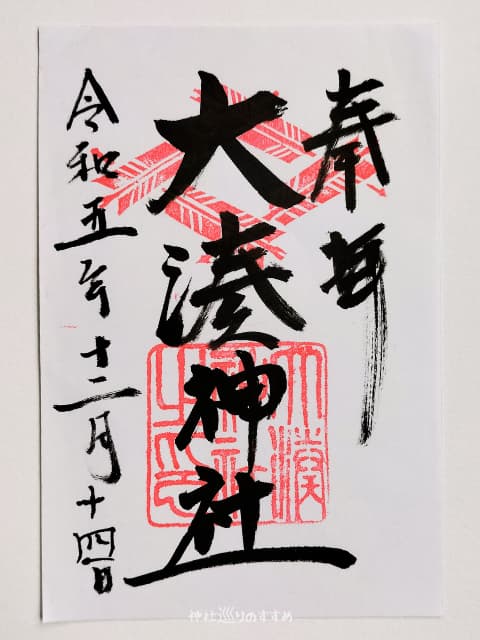 奉拝
大湊神社
令和五年十二月十四日
大湊
神社
之印
神社巡りのすすめ